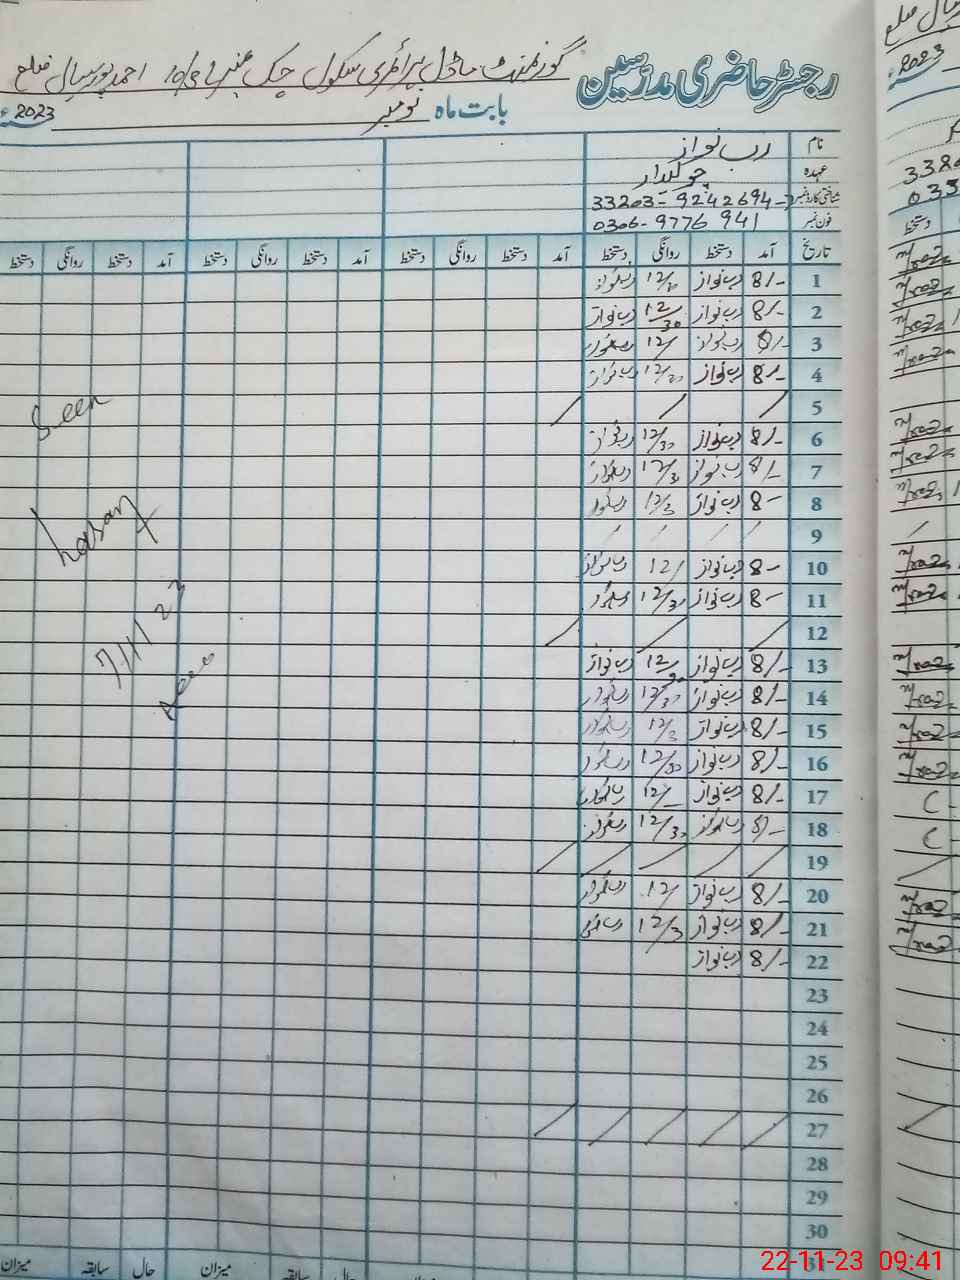 رجسٹر حاضری مدرسین گورنمنٹ ماڈل پرائمری سکول چک نمبر 10/3L احمد پور سیال ضلع
بابت ماہ نومبر 2023ء
نام رب نواز
عہدہ چوکیدار
شناختی کارڈ نمبر 33203-9242694-3
فون نمبر 0306-9776 941
تاریخ آمد دستخط روانگی دستخط آمد دستخط روانگی دستخط آمد دستخط روانگی دستخط
1 8/- رب نواز 12/30 رب نواز
2 8/- رب نواز 12/30 رب نواز
3 8/- رب نواز 12/ رب نواز
4 8/- رب نواز 12/30 رب نواز
5
6 8/- رب نواز 12/30 رب نواز
7 8/- رب نواز 12/30 رب نواز
8 8- رب نواز 12/3 رب نواز
9
10 8- رب نواز 12/ رب نواز
11 8- رب نواز 12/30 رب نواز
12
13 8/- رب نواز 12/30 رب نواز
14 8/- رب نواز 12/30 رب نواز
15 8/- رب نواز 12/3 رب نواز
16 8/- رب نواز 12/30 رب نواز
17 8/- رب نواز 12/- رب نواز
18 8/- رب نواز 12/30 رب نواز
19
20 8/- رب نواز 12/ رب نواز
21 8/- رب نواز 12/3 رب نواز
22 8/- رب نواز
23
24
25
26
27
28
29
30
31
Seen
hasan
7/11/23
میزان سابقہ حال میزان سابقہ حال
2023ء
دستخط
22-11-23 09:41